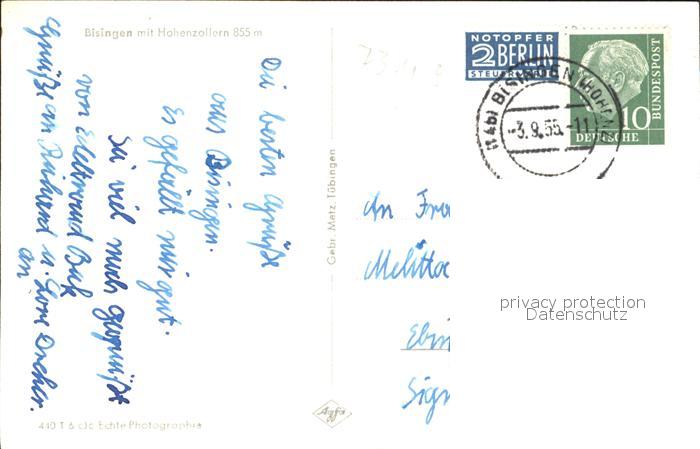 Bisingen mit Hohenzollern 855 m
NOTOPFER
2 BERLIN
STEUERMARKE
(14b) BISINGEN (HOHENZ
-3.9.55.-11
10
DEUTSCHE
BUNDESPOST
Die besten Grüße
aus Bisingen.
Es gefällt mir gut.
Sei viel mals gegrüßt
von
Grüße an Richard u. Lore Dreher.
an
Gebr. Metz, Tübingen
An Fra
Melitta
Ebin
Sigm
privacy protection
Datenschutz
Agfa
440 T 6 c/c Echte Photographie